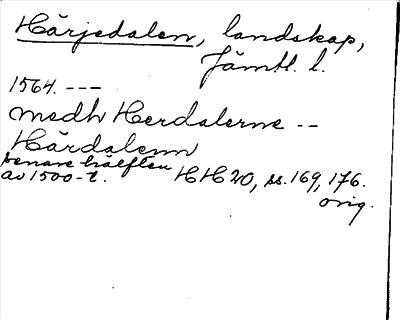 Härjedalen, landskap,
Jämtl. l.
1564. ---
medh Herdalerne --
Härdalenn
senare hälften
av 1500-t. HH 20, ss. 169, 176.
orig.